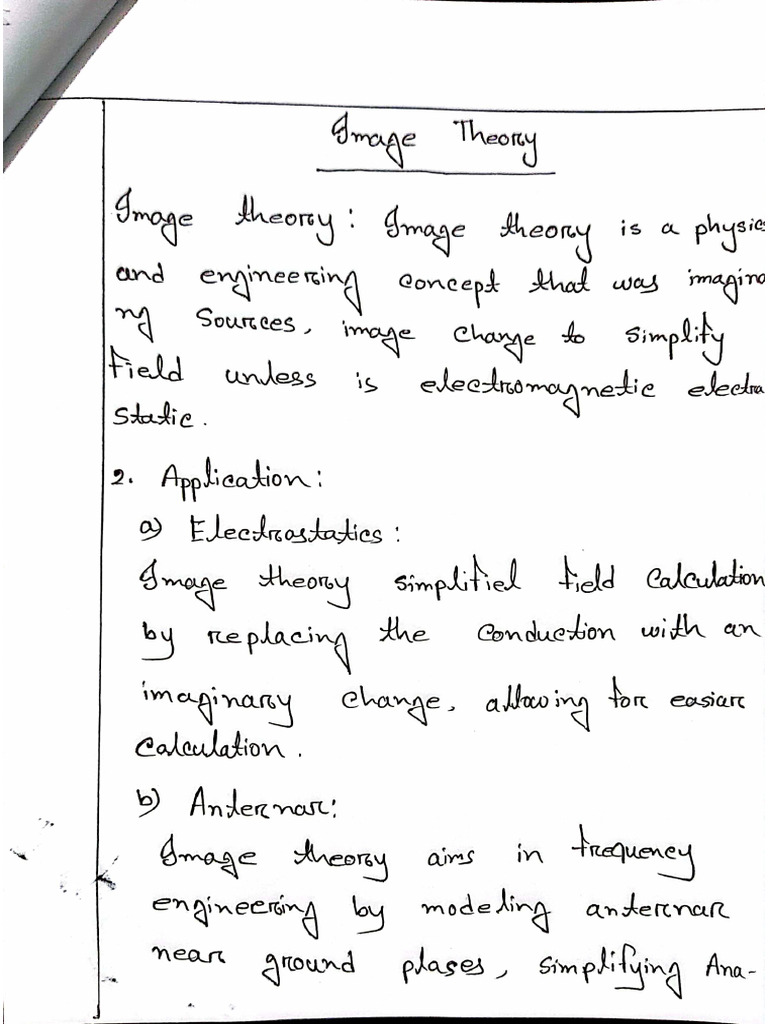 Image Theory
Image theory: Image theory is a physics
and engineering concept that was imagina
ng sources, image change to simplify
field unless is electromagnetic electro
static.
2. Application:
a) Electrostatics:
Image theory simplifiel field calculation
by replacing the conduction with an
imaginary change, allowing for easiar
calculation.
b) Anternar:
Image theory aims in frequency
engineering by modeling anternar
near ground plases, simplifying Ana-